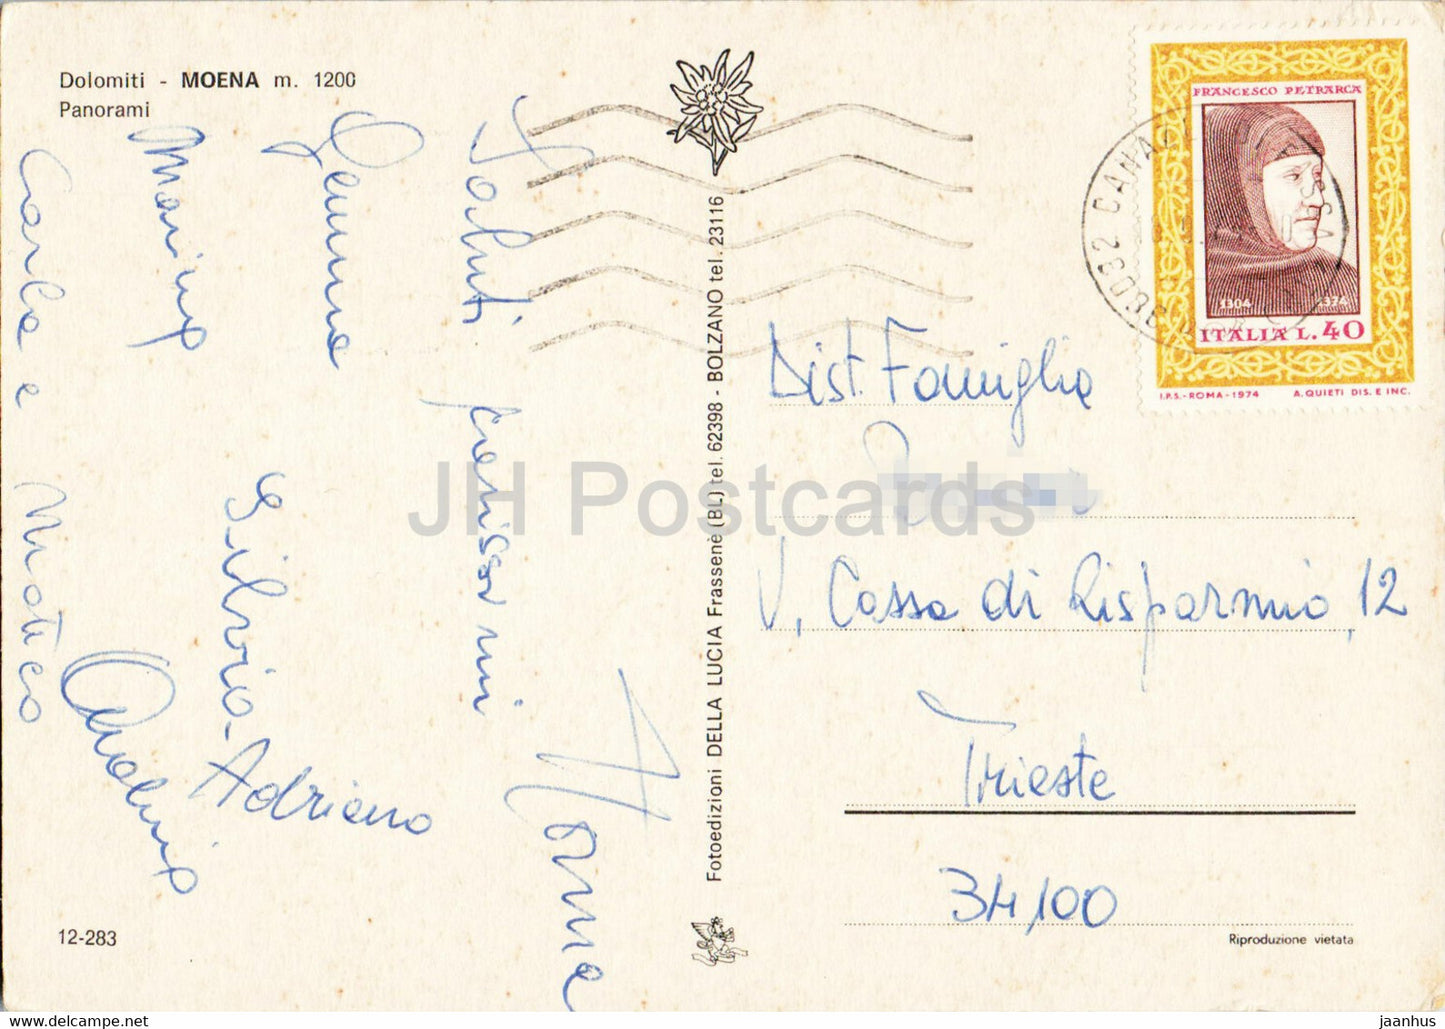 Dolomiti - MOENA m. 1200
Panorami
Saluti
Marino
Carla e Matteo
Silvia - Adriano
FRANCESCO PETRARCA
1304 1374
ITALIA L.40
I.P.S.-ROMA-1974 A. QUIETI DIS. E INC.
38032 CANAZEI
Dist. Famiglia
V. Cassa di Risparmio, 12
Trieste
34100
Fotoedizioni DELLA LUCIA Frassenè (BL) tel. 62398 - BOLZANO tel. 23116
12-283
Riproduzione vietata
JH Postcards
www.delcampe.net
jaanhus